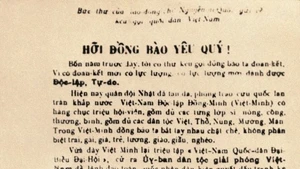 Bức thư của lão đồng chí Nguyễn Ái Quốc gửi
kêu gọi quốc dân Việt-Nam
HỠI ĐỒNG BÀO YÊU QUÝ !
Bốn năm trước đây, tôi có thư kêu gọi đồng bào ta đoàn-kết.
Vì có đoàn-kết mới có lực lượng, có lực lượng mới đánh được
Độc-lập, Tự-do.
Hiện nay quân đội Nhật đã tan rã, phong trào cứu quốc lan
tràn khắp nước Việt-Nam Độc lập Đồng-Minh (Việt-Minh) có
hàng chục triệu hội-viên, gồm đủ các từng lớp sĩ, nông, công,
thương, binh, gồm đủ các dân tộc Việt, Thổ, Nùng, Mường, Mán
Trong Việt-Minh đồng bào ta bắt tay nhau chặt chẽ, không phân
biệt trai, gái, già, trẻ, lương, giáo, giầu, nghèo.
Vừa đây Việt Minh lại triệu tập « Việt-Nam Quốc-dân Đại-
Biểu Đại Hội », cử ra Ủy-ban dân tộc giải phóng Việt-